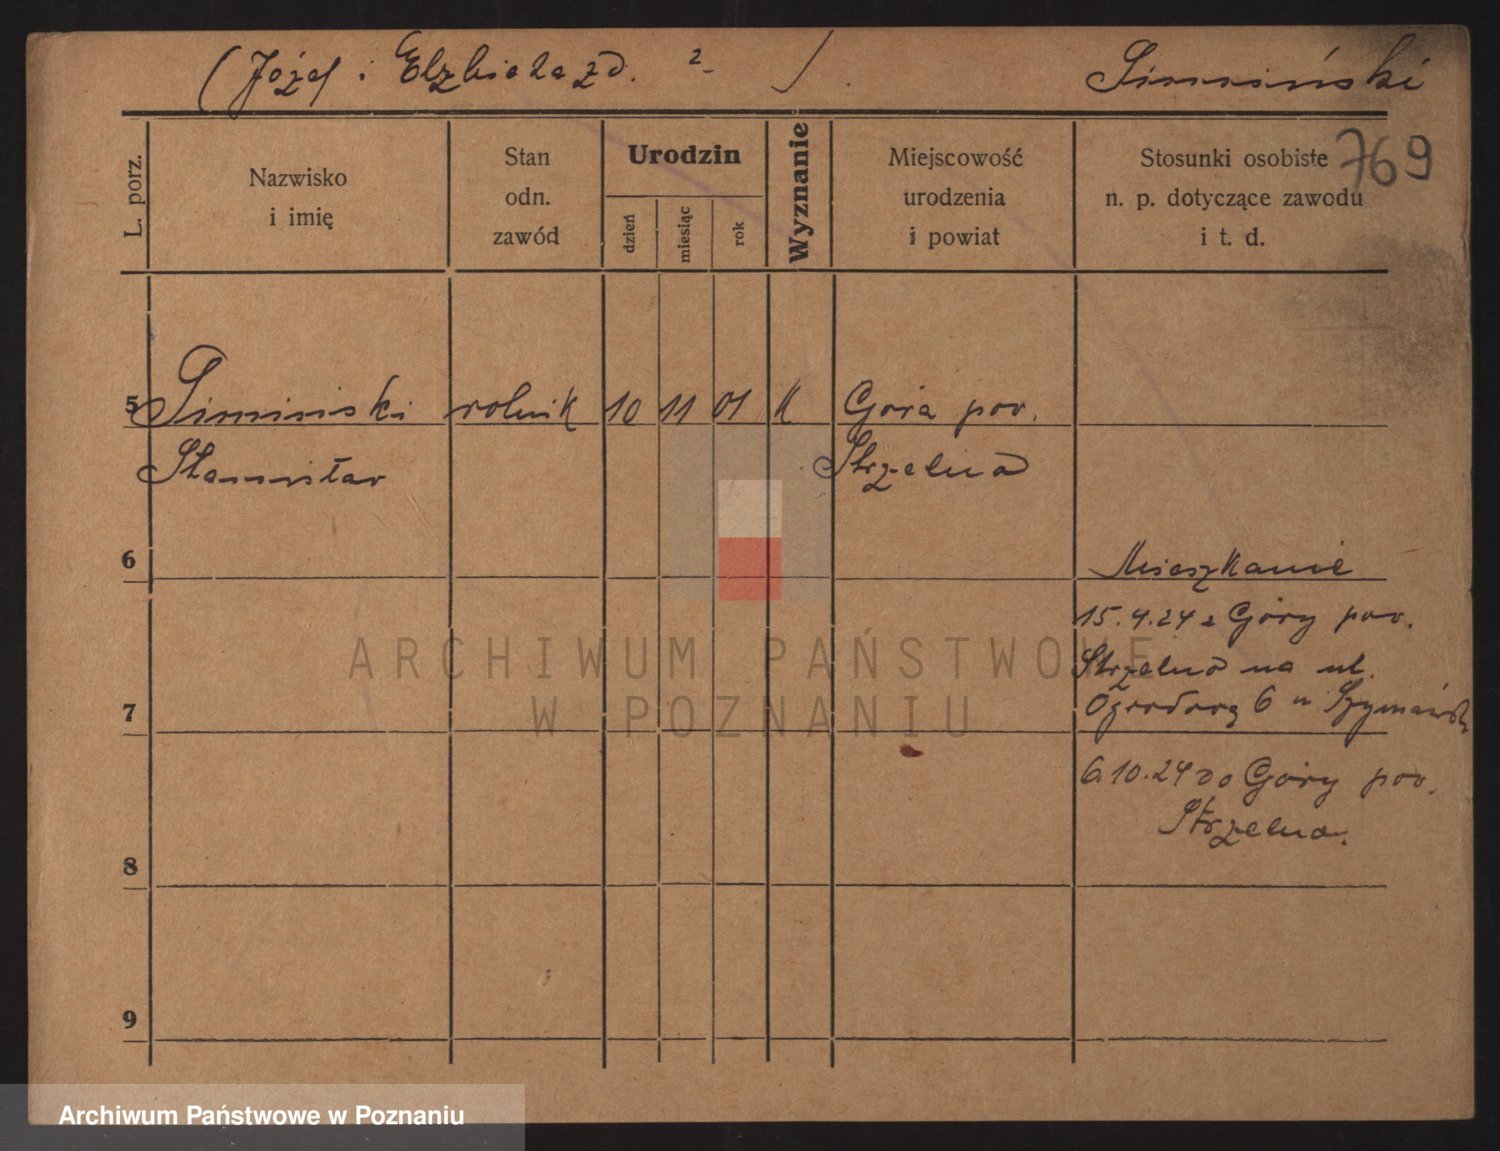 (Józef i Elżbieta zd. ?)
Simiński
769
L. porz.
Nazwisko
i imię
Stan
odn.
zawód
Urodzin
dzień
miesiąc
rok
Wyznanie
Miejscowość
urodzenia
i powiat
Stosunki osobiste
n. p. dotyczące zawodu
i t. d.
5 Simiński rolnik 10 11 01 K Góra pow.
Stanisław Strzelno
6
Mieszkanie
15.4.24 z Góry pow.
Strzelno na ul.
Ogrodową 6 u
7
6.10.24 do Góry pow.
Strzelno.
8
9
ARCHIWUM PAŃSTWOWE
W POZNANIU
Archiwum Państwowe w Poznaniu